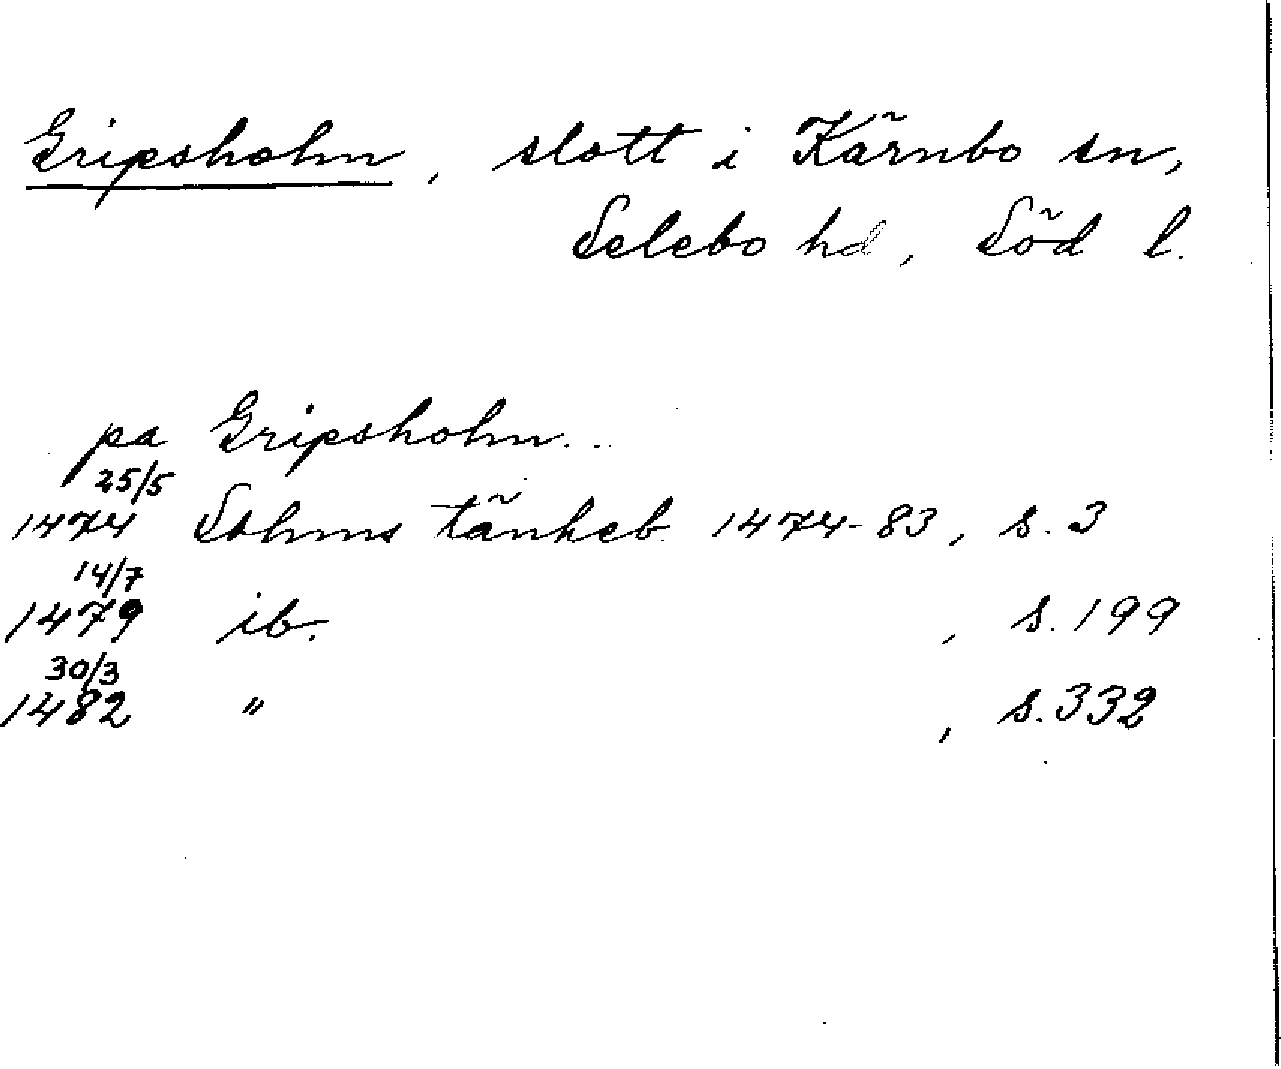 Gripsholm, slott i Kärnbo sn,
Selebo hd, Söd l.
pa Gripsholm...
25/5
1474 Sthms tänkeb 1474-83, s. 3
14/7
1479 ib. , s. 199
30/3
1482 " , s. 332